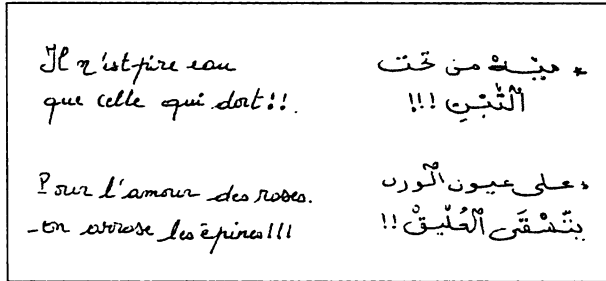 Il n'est pire eau
que celle qui dort!!.
* ميّــة من تحت
التِّبْنِ !!!
Pour l'amour des roses.
on arrose les épines!!!
* على عيون الورد
بِتِسْقَى العُلّيقْ !!